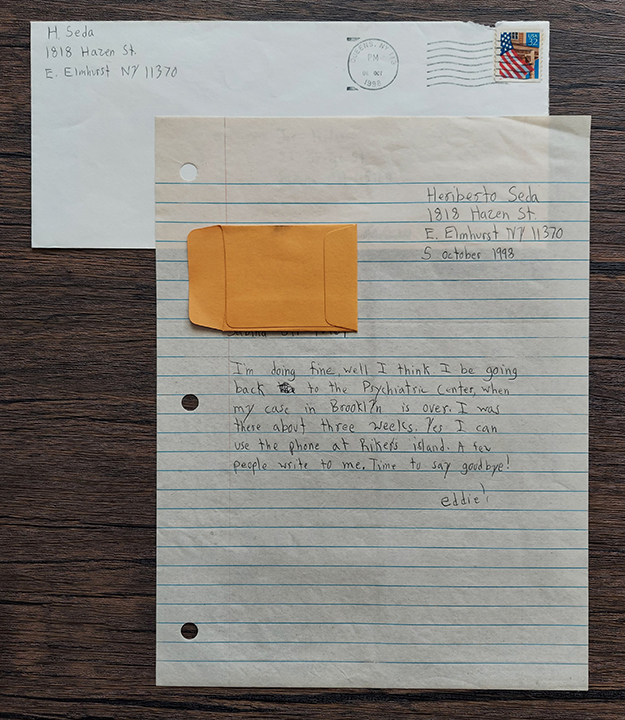 H. Seda
1818 Hazen St.
E. Elmhurst NY 11370
QUEENS, NY
PM
OCT
1998
USA
32
Heriberto Seda
1818 Hazen St.
E. Elmhurst NY 11370
5 october 1998
I'm doing fine, well I think I be going
back to the Psychiatric Center, when
my case in Brooklyn is over. I was
there about three weeks. Yes I can
use the phone at Rikers island. A few
people write to me. Time to say goodbye!
eddie!